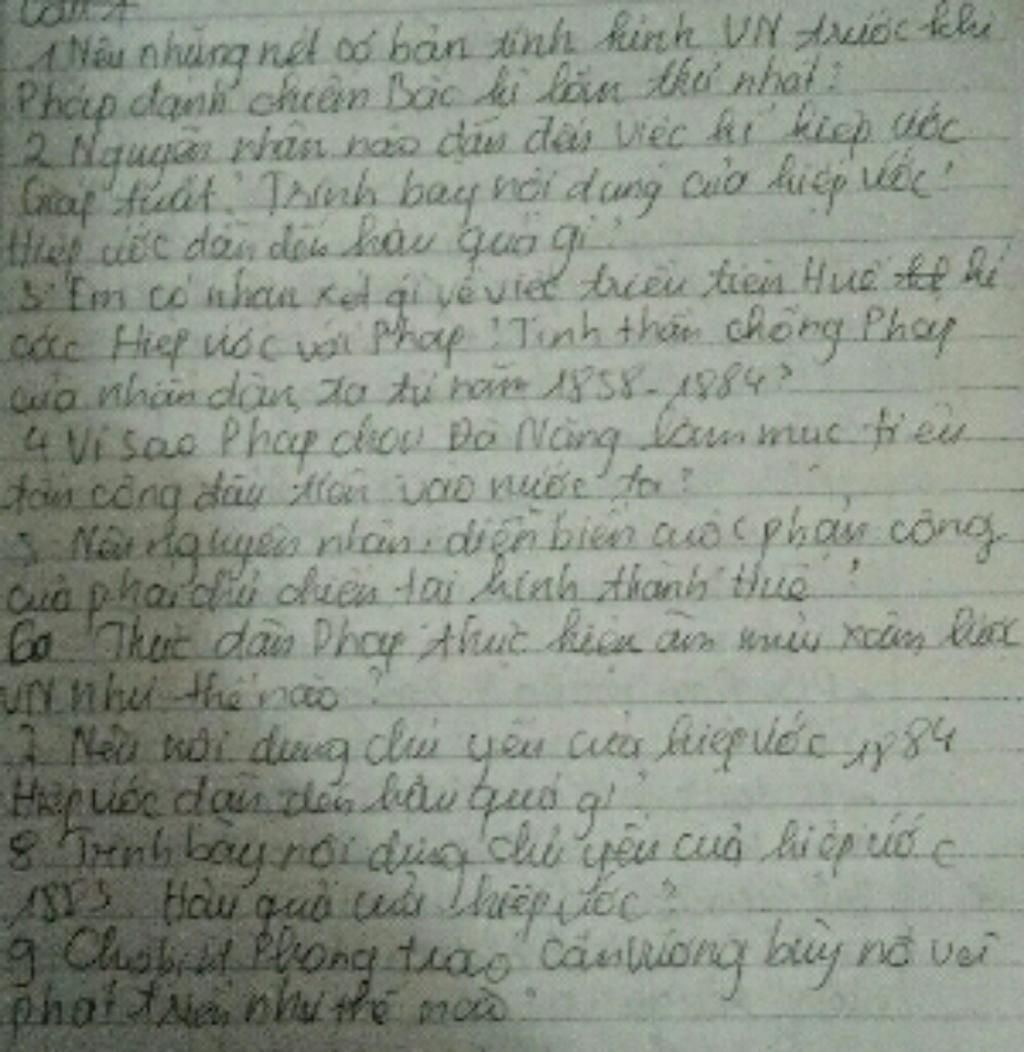 1 Nêu những nét cơ bản tình hình VN trước khi
Pháp đánh chiếm Bắc kì lần thứ nhất?
2 Nguyên nhân nào dẫn đến việc kí hiệp ước
Giáp tuất. Trình bày nội dung của hiệp ước?
Hiệp ước dẫn đến hậu quả gì?
3 Em có nhận xét gì về việc triều tiên Huế kí
các Hiệp ước với Pháp? Tinh thần chống Pháp
của nhân dân ta từ năm 1858-1884?
4 Vì sao Pháp chọn Đà Nẵng làm mục tiêu
tấn công đầu tiên vào nước ta?
5 Nêu nguyên nhân, diễn biến cuộc phản công
của phái chủ chiến tại kinh thành Huế?
6 Thực dân Pháp thực hiện âm mưu xâm lược
VN như thế nào?
7 Nêu nội dung chủ yếu của hiệp ước 1884
Hiệp ước dẫn đến hậu quả gì?
8 Trình bày nội dung chủ yếu của hiệp ước
1883. Hậu quả của hiệp ước?
9 Cho biết Phong trào Cần Vương bùng nổ và
phát triển như thế nào?